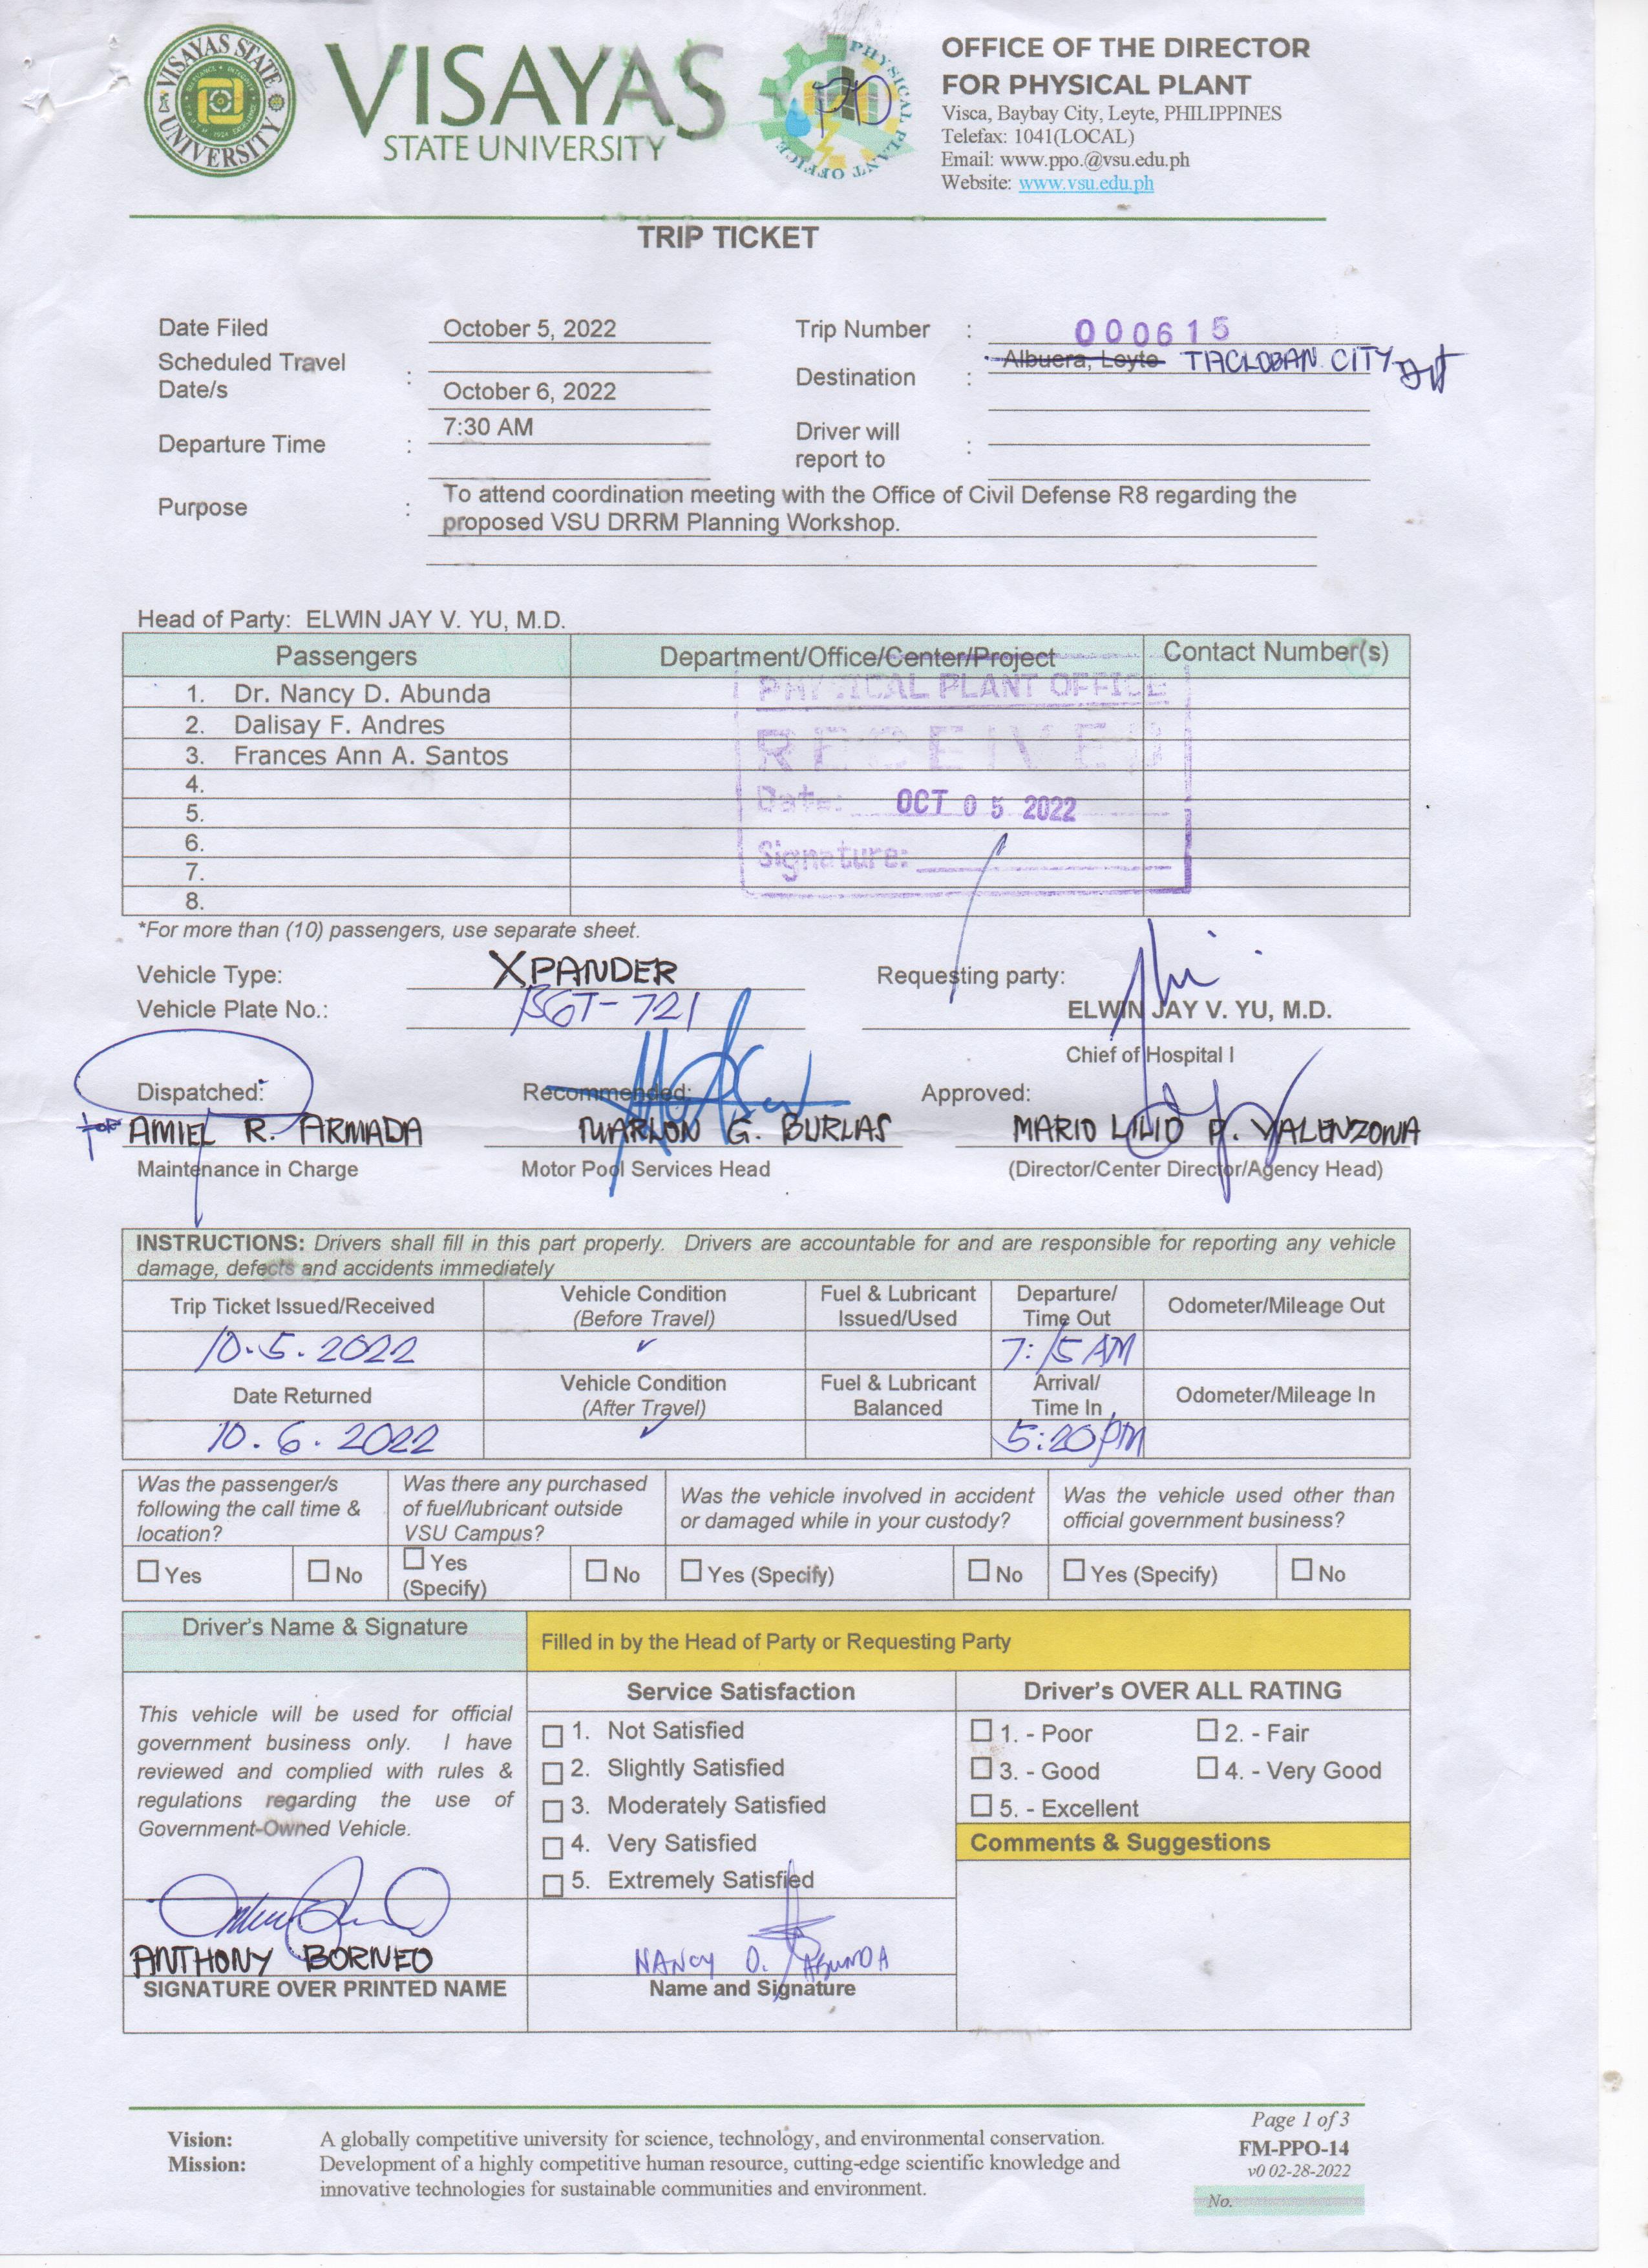 VISAYAS STATE UNIVERSITY
VISAYAS
STATE UNIVERSITY
PHYSICAL PLANT OFFICE
OFFICE OF THE DIRECTOR
FOR PHYSICAL PLANT
Visca, Baybay City, Leyte, PHILIPPINES
Telefax: 1041(LOCAL)
Email: www.ppo.@vsu.edu.ph
Website: www.vsu.edu.ph
TRIP TICKET
Date Filed October 5, 2022 Trip Number : 000615
Scheduled Travel Date/s : October 6, 2022 Destination : Albuera, Leyte TACLOBAN CITY
Departure Time : 7:30 AM Driver will report to :
Purpose : To attend coordination meeting with the Office of Civil Defense R8 regarding the
proposed VSU DRRM Planning Workshop.
Head of Party: ELWIN JAY V. YU, M.D.
Passengers Department/Office/Center/Project Contact Number(s)
1. Dr. Nancy D. Abunda
2. Dalisay F. Andres
3. Frances Ann A. Santos
4.
5.
6.
7.
8.
PHYSICAL PLANT OFFICE
RECEIVED
Date: OCT 05 2022
Signature:
*For more than (10) passengers, use separate sheet.
Vehicle Type: XPANDER Requesting party:
Vehicle Plate No.: BGT-721 ELWIN JAY V. YU, M.D.
Chief of Hospital I
Dispatched: Recommended: Approved:
for AMIEL R. ARMADA MARLON G. BURLAS MARIO LILIO P. VALENZONA
Maintenance in Charge Motor Pool Services Head (Director/Center Director/Agency Head)
INSTRUCTIONS: Drivers shall fill in this part properly. Drivers are accountable for and are responsible for reporting any vehicle
damage, defects and accidents immediately
Trip Ticket Issued/Received Vehicle Condition (Before Travel) Fuel & Lubricant Issued/Used Departure/ Time Out Odometer/Mileage Out
10.5.2022 ✓ 7:15 AM
Date Returned Vehicle Condition (After Travel) Fuel & Lubricant Balanced Arrival/ Time In Odometer/Mileage In
10.6.2022 ✓ 5:20 PM
Was the passenger/s following the call time & location? Was there any purchased of fuel/lubricant outside VSU Campus? Was the vehicle involved in accident or damaged while in your custody? Was the vehicle used other than official government business?
☐ Yes ☐ No ☐ Yes (Specify) ☐ No ☐ Yes (Specify) ☐ No ☐ Yes (Specify) ☐ No
Driver's Name & Signature Filled in by the Head of Party or Requesting Party
This vehicle will be used for official
government business only. I have
reviewed and complied with rules &
regulations regarding the use of
Government-Owned Vehicle.
ANTHONY BORNEO
SIGNATURE OVER PRINTED NAME
Service Satisfaction
☐ 1. Not Satisfied
☐ 2. Slightly Satisfied
☐ 3. Moderately Satisfied
☐ 4. Very Satisfied
☐ 5. Extremely Satisfied
NANCY D. ABUNDA
Name and Signature
Driver's OVER ALL RATING
☐ 1. - Poor ☐ 2. - Fair
☐ 3. - Good ☐ 4. - Very Good
☐ 5. - Excellent
Comments & Suggestions
Vision: A globally competitive university for science, technology, and environmental conservation.
Mission: Development of a highly competitive human resource, cutting-edge scientific knowledge and
innovative technologies for sustainable communities and environment.
Page 1 of 3
FM-PPO-14
v0 02-28-2022
No.